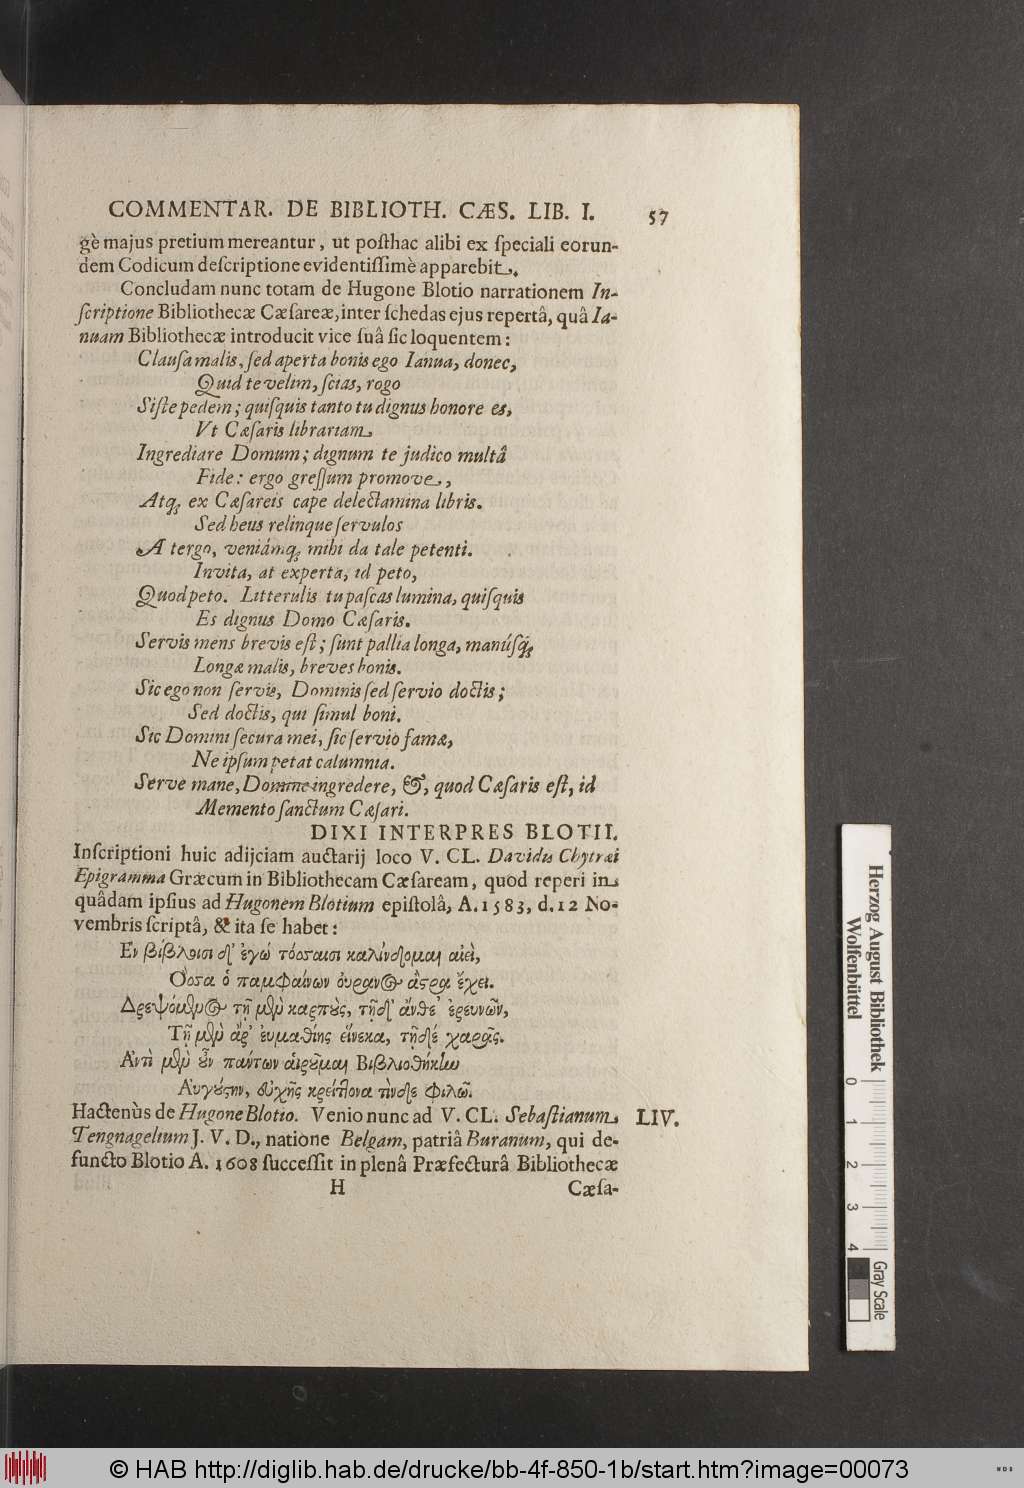 COMMENTAR. DE BIBLIOTH. CÆS. LIB. I. 57
gè majus pretium mereantur, ut posthac alibi ex speciali eorun-
dem Codicum descriptione evidentissimè apparebit.
Concludam nunc totam de Hugone Blotio narrationem In-
scriptione Bibliothecæ Cæsareæ, inter schedas ejus repertâ, quâ Ia-
nuam Bibliothecæ introducit vice suâ sic loquentem:
Clausa malis, sed aperta bonis ego Ianua, donec,
Quid te velim, scias, rogo
Siste pedem; quisquis tanto tu dignus honore es,
Vt Cæsaris librariam
Ingrediare Domum; dignum te judico multâ
Fide: ergo gressum promove,
Atq; ex Cæsareis cape delectamina libris.
Sed heus relinque servulos
A tergo, veniámq; mihi da tale petenti.
Invita, at experta, id peto,
Quod peto. Litterulis tu pascas lumina, quisquis
Es dignus Domo Cæsaris.
Servis mens brevis est; sunt pallia longa, manúsq;
Longæ malis, breves bonis.
Sic ego non servis, Dominis sed servio doctis;
Sed doctis, qui simul boni.
Sic Domini secura mei, sic servio famæ,
Ne ipsum petat calumnia.
Serve mane, Domine ingredere, &, quod Cæsaris est, id
Memento sanctum Cæsari.
DIXI INTERPRES BLOTII.
Inscriptioni huic adijciam auctarij loco V. CL. Davidis Chytræi
Epigramma Græcum in Bibliothecam Cæsaream, quod reperi in
quâdam ipsius ad Hugonem Blotium epistolâ, A. 1583, d. 12 No-
vembris scriptâ, & ita se habet:
Ἐν βίβλοισι δ' ἐγώ τόσσαισι καλίνδομαι αἰεὶ,
Ὅσσα ὁ παμφαίνων οὐρανὸς ἄστρα ἔχει.
Δρεψόμενος τῇ μὲν καρποὺς, τῇ δ' ἄνθε' ἐρευνῶν,
Τῇ μὲν ἄρ' εὐμαθίης εἵνεκα, τῇ δέ χαρᾶς.
Ἀντὶ μὲν οὖν πάντων αἱροῦμαι Βιβλιοθήκην
Αὐγούστην, εὐχῆς κρείττονα τὴν δε φιλῶ.
Hactenùs de Hugone Blotio. Venio nunc ad V. CL. Sebastianum LIV.
Tengnagelium J. V. D., natione Belgam, patriâ Buranum, qui de-
functo Blotio A. 1608 successit in plenâ Præfecturâ Bibliothecæ
H Cæsa-
Herzog August Bibliothek
Wolfenbüttel
0 1 2 3 4
Gray Scale
© HAB http://diglib.hab.de/drucke/bb-4f-850-1b/start.htm?image=00073